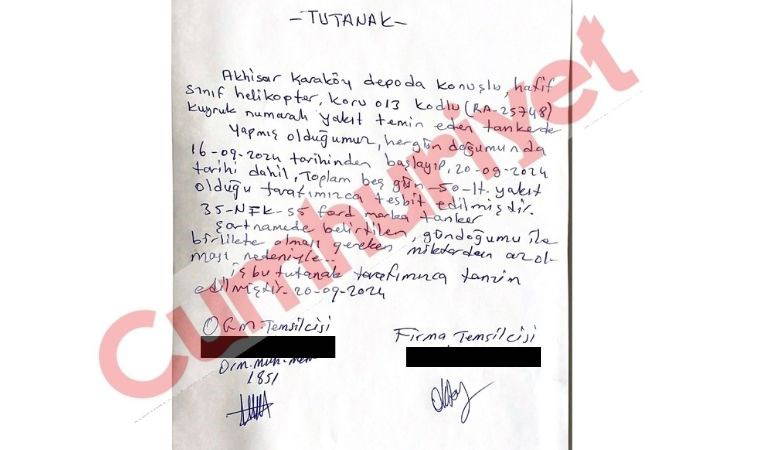 -TUTANAK-
Akhisar Karaköy depoda konuşlu, hafif
sınıf helikopter, koru 013 kodlu (RA-25748)
kuyruk numaralı yakıt temin eden tankerde
Yapmış olduğumuz, hergün doğumunda
16-09-2024 tarihinden başlayıp, 20-09-2024
tarihi dahil, Toplam beş gün -50-lt. yakıt
olduğu tarafımızca tesbit edilmiştir.
35-NFK-55 ford marka tanker
Şartnamede belirtilen, gündoğumu ile
birlikte olması gereken miktardan az ol-
ması nedeniyle..
işbu tutanak tarafımızca tanzim
edilmiştir. 20-09-2024
OGM. Temsilcisi
Firma Temsilcisi
Orm. Muh. mem
1851
Cumhuriyet